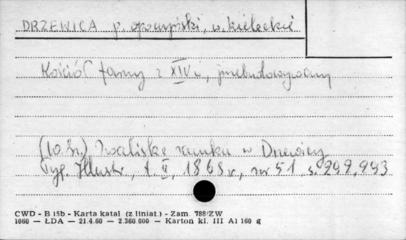 DRZEWICA p. opoczyński, w. kieleckie
Kościół farny z XIV w., przebudowywany
(10.) zamku w Drzewicy
Tyg. Illustr., t. II, 1868 r., nr 51 s. 299, 993
CWD - B 15b - Karta katal (z liniat.) - Zam. 788/ZW
1060 — LDA — 21.4.60 — 2.360.000 — Karton kl. III A1 160 g